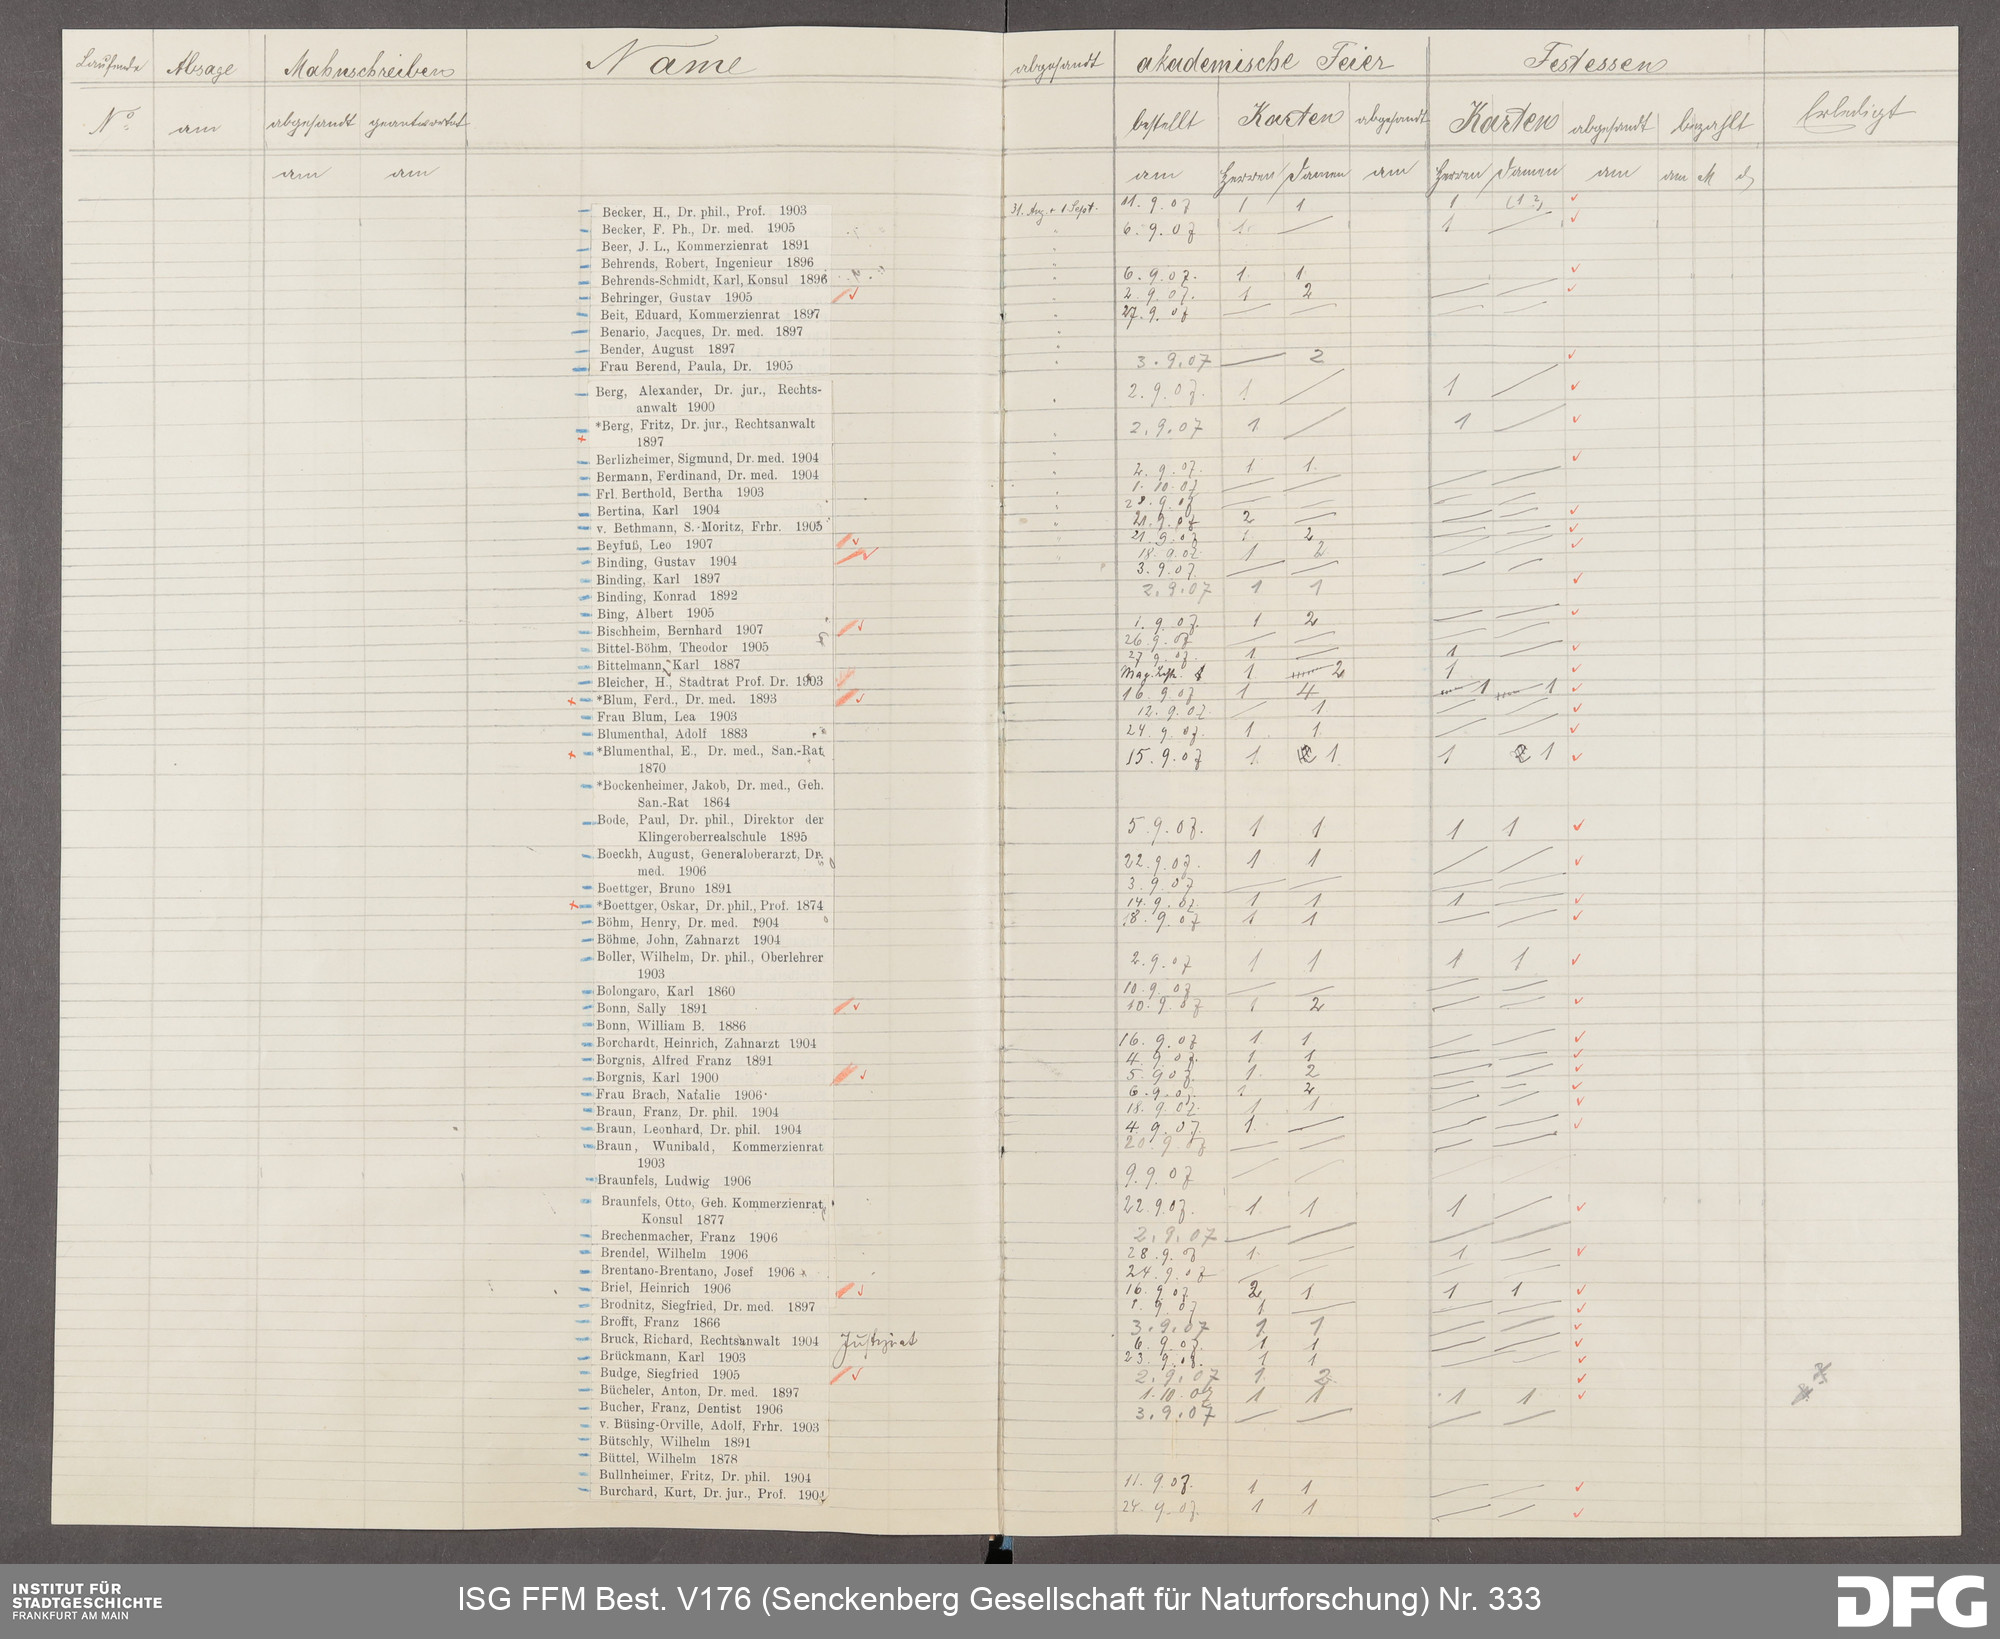 Laufende Absage Mahnschreiben Name abgesandt akademische Feier Festessen
No. am abgesandt geantwortet bestellt Karten abgesandt Karten abgesandt bezahlt Erledigt
am am am Herren Damen am Herren Damen am am M
Becker, H., Dr. phil., Prof. 1903 31. Aug. + 1 Sept. 11.9.07 1 1 1 (1?)
Becker, F. Ph., Dr. med. 1905 6.9.07 1 1
Beer, J. L., Kommerzienrat 1891
Behrends, Robert, Ingenieur 1896
Behrends-Schmidt, Karl, Konsul 1896 6.9.07. 1 1
Behringer, Gustav 1905 2.9.07. 1 2
Beit, Eduard, Kommerzienrat 1897 27.9.07
Benario, Jacques, Dr. med. 1897
Bender, August 1897
Frau Berend, Paula, Dr. 1905 3.9.07 2
Berg, Alexander, Dr. jur., Rechts- 2.9.07. 1 1
anwalt 1900
*Berg, Fritz, Dr. jur., Rechtsanwalt 2.9.07 1 1
1897
Berlizheimer, Sigmund, Dr. med. 1904 2.9.07. 1 1
Bermann, Ferdinand, Dr. med. 1904 1.10.07
Frl. Berthold, Bertha 1903 28.9.07
Bertina, Karl 1904 21.9.07 2
v. Bethmann, S.-Moritz, Frhr. 1905 21.9.07 1 2
Beyfuß, Leo 1907 18.9.07 1 2
Binding, Gustav 1904 3.9.07.
Binding, Karl 1897 2.9.07 1 1
Binding, Konrad 1892
Bing, Albert 1905 1.9.07. 1 2
Bischheim, Bernhard 1907 26.9.07
Bittel-Böhm, Theodor 1905 27.9.07. 1 1
Bittelmann, Karl 1887 1 2 1
Bleicher, H., Stadtrat Prof. Dr. 1903 16.9.07 1 4 1 1
*Blum, Ferd., Dr. med. 1893 12.9.07. 1
Frau Blum, Lea 1903 24.9.07. 1 1
Blumenthal, Adolf 1883
*Blumenthal, E., Dr. med., San.-Rat 15.9.07 1 1 1 2 1
1870
*Bockenheimer, Jakob, Dr. med., Geh.
San.-Rat 1864
Bode, Paul, Dr. phil., Direktor der 5.9.07. 1 1 1 1
Klingeroberrealschule 1895
Boeckh, August, Generaloberarzt, Dr. 22.9.07. 1 1
med. 1906
Boettger, Bruno 1891 3.9.07
*Boettger, Oskar, Dr. phil., Prof. 1874 14.9.07. 1 1 1
Böhm, Henry, Dr. med. 1904 18.9.07 1 1
Böhme, John, Zahnarzt 1904
Boller, Wilhelm, Dr. phil., Oberlehrer 2.9.07 1 1 1 1
1903
Bolongaro, Karl 1860 10.9.07
Bonn, Sally 1891 10.9.07 1 2
Bonn, William B. 1886
Borchardt, Heinrich, Zahnarzt 1904 16.9.07 1 1
Borgnis, Alfred Franz 1891 4.9.07. 1 1
Borgnis, Karl 1900 5.9.07. 1 2
Frau Brach, Natalie 1906 6.9.07. 1 2
Braun, Franz, Dr. phil. 1904 18.9.07. 1 1
Braun, Leonhard, Dr. phil. 1904 4.9.07. 1
Braun, Wunibald, Kommerzienrat 20.9.07
1903
Braunfels, Ludwig 1906 9.9.07
Braunfels, Otto, Geh. Kommerzienrat, 22.9.07. 1 1 1
Konsul 1877
Brechenmacher, Franz 1906 2.9.07
Brendel, Wilhelm 1906 28.9.07 1 1
Brentano-Brentano, Josef 1906 24.9.07
Briel, Heinrich 1906 16.9.07 2 1 1 1
Brodnitz, Siegfried, Dr. med. 1897 1.9.07 1
Brofft, Franz 1866 3.9.07 1 1
Bruck, Richard, Rechtsanwalt 1904 Justizrat 6.9.07. 1 1
Brückmann, Karl 1903 23.9.07. 1 1
Budge, Siegfried 1905 2.9.07 1 2
Bücheler, Anton, Dr. med. 1897 1.10.07 1 1 1 1
Bucher, Franz, Dentist 1906 3.9.07
v. Büsing-Orville, Adolf, Frhr. 1903
Bütschly, Wilhelm 1891
Büttel, Wilhelm 1878
Bullnheimer, Fritz, Dr. phil. 1904 11.9.07. 1 1
Burchard, Kurt, Dr. jur., Prof. 1904 24.9.07. 1 1
INSTITUT FÜR
STADTGESCHICHTE
FRANKFURT AM MAIN
ISG FFM Best. V176 (Senckenberg Gesellschaft für Naturforschung) Nr. 333
DFG